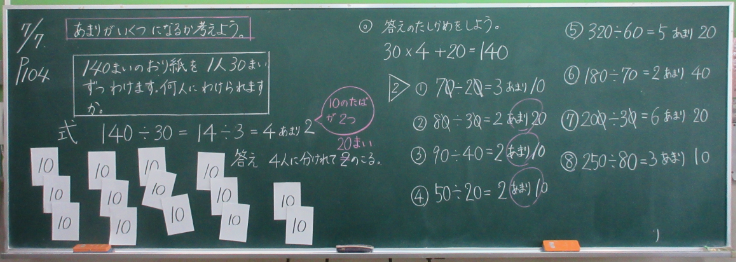 7/7.
P104
あまりがいくつになるか考えよう。
140まいのおり紙を1人30まい
ずつわけます。何人にわけられます
か。
式 140÷30=14÷3=4あまり2
10のたば
が2つ
20まい
答え 4人に分けれて2のこる。
10 10 10 10
10 10 10 10 10
10 10 10 10 10
。答えのたしかめをしよう。
30×4+20=140
2
① 70-20=3あまり10
② 80÷30=2あまり20
③ 90÷40=2あまり10
④ 50÷20=2あまり10
⑤ 320÷60=5あまり20
⑥ 180÷70=2あまり40
⑦ 200÷30=6あまり20
⑧ 250÷80=3あまり10